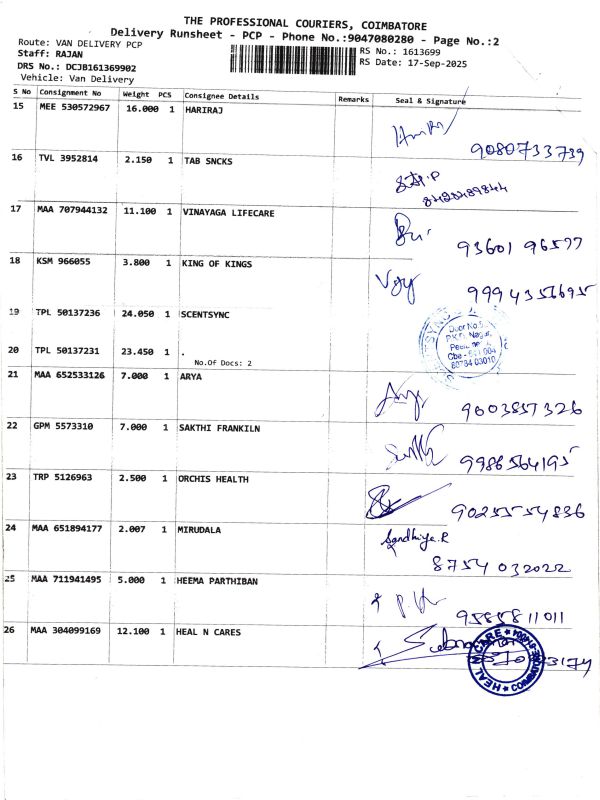 THE PROFESSIONAL COURIERS, COIMBATORE
Delivery Runsheet - PCP - Phone No.:9047080280 - Page No.:2
Route: VAN DELIVERY PCP
Staff: RAJAN
DRS No.: DCJB161369902
Vehicle: Van Delivery
RS No.: 1613699
RS Date: 17-Sep-2025
S No Consignment No Weight PCS Consignee Details Remarks Seal & Signature
15 MEE 530572967 16.000 1 HARIRAJ
9080733739
16 TVL 3952814 2.150 1 TAB SNCKS
17 MAA 707944132 11.100 1 VINAYAGA LIFECARE
93601 96577
18 KSM 966055 3.800 1 KING OF KINGS
9994356695
19 TPL 50137236 24.050 1 SCENTSYNC
Door No.
P.K.D. Nagar,
Cbe - 641 004
20 TPL 50137231 23.450 1 .
No.Of Docs: 2
21 MAA 652533126 7.000 1 ARYA
9003857326
22 GPM 5573310 7.000 1 SAKTHI FRANKILN
9986564195
23 TRP 5126963 2.500 1 ORCHIS HEALTH
9025554836
24 MAA 651894177 2.007 1 MIRUDALA
Sandhiya.R
8754 032022
25 MAA 711941495 5.000 1 HEEMA PARTHIBAN
9585811011
26 MAA 304099169 12.100 1 HEAL N CARES
HEAL N CARE
COIMBATORE